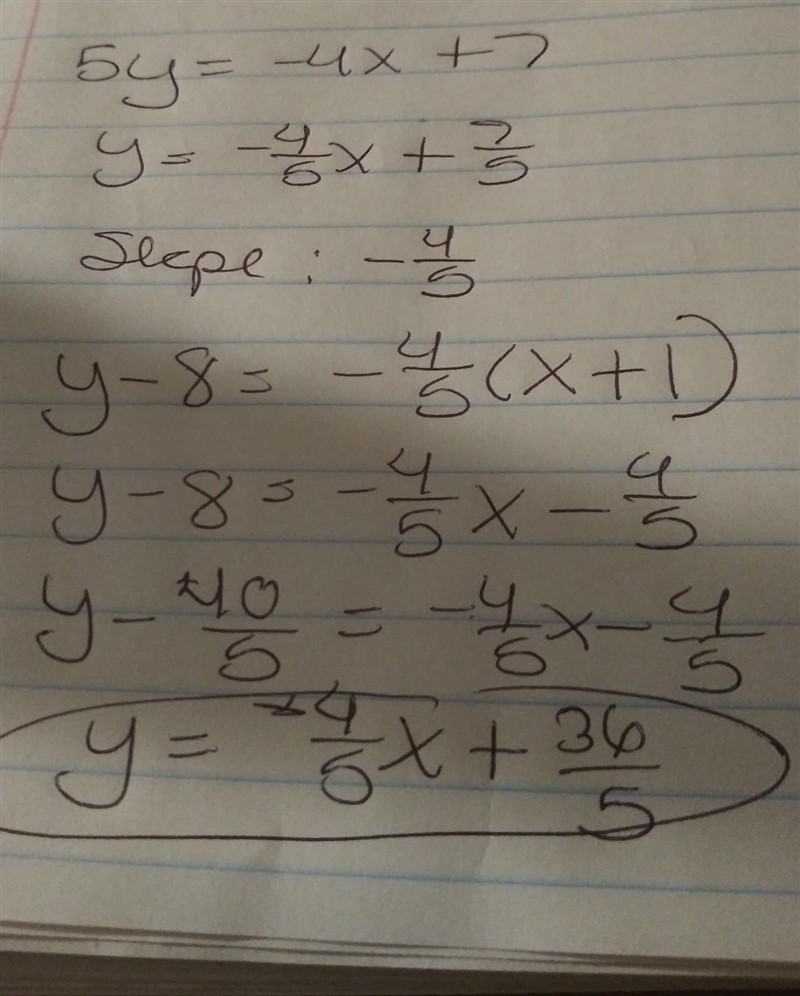 5y = -4x + 7
y = -4/5x + 7/5
Slope : -4/5
y - 8 = -4/5(x + 1)
y - 8 = -4/5x - 4/5
y - 40/5 = -4/5x - 4/5
y = -4/5x + 36/5